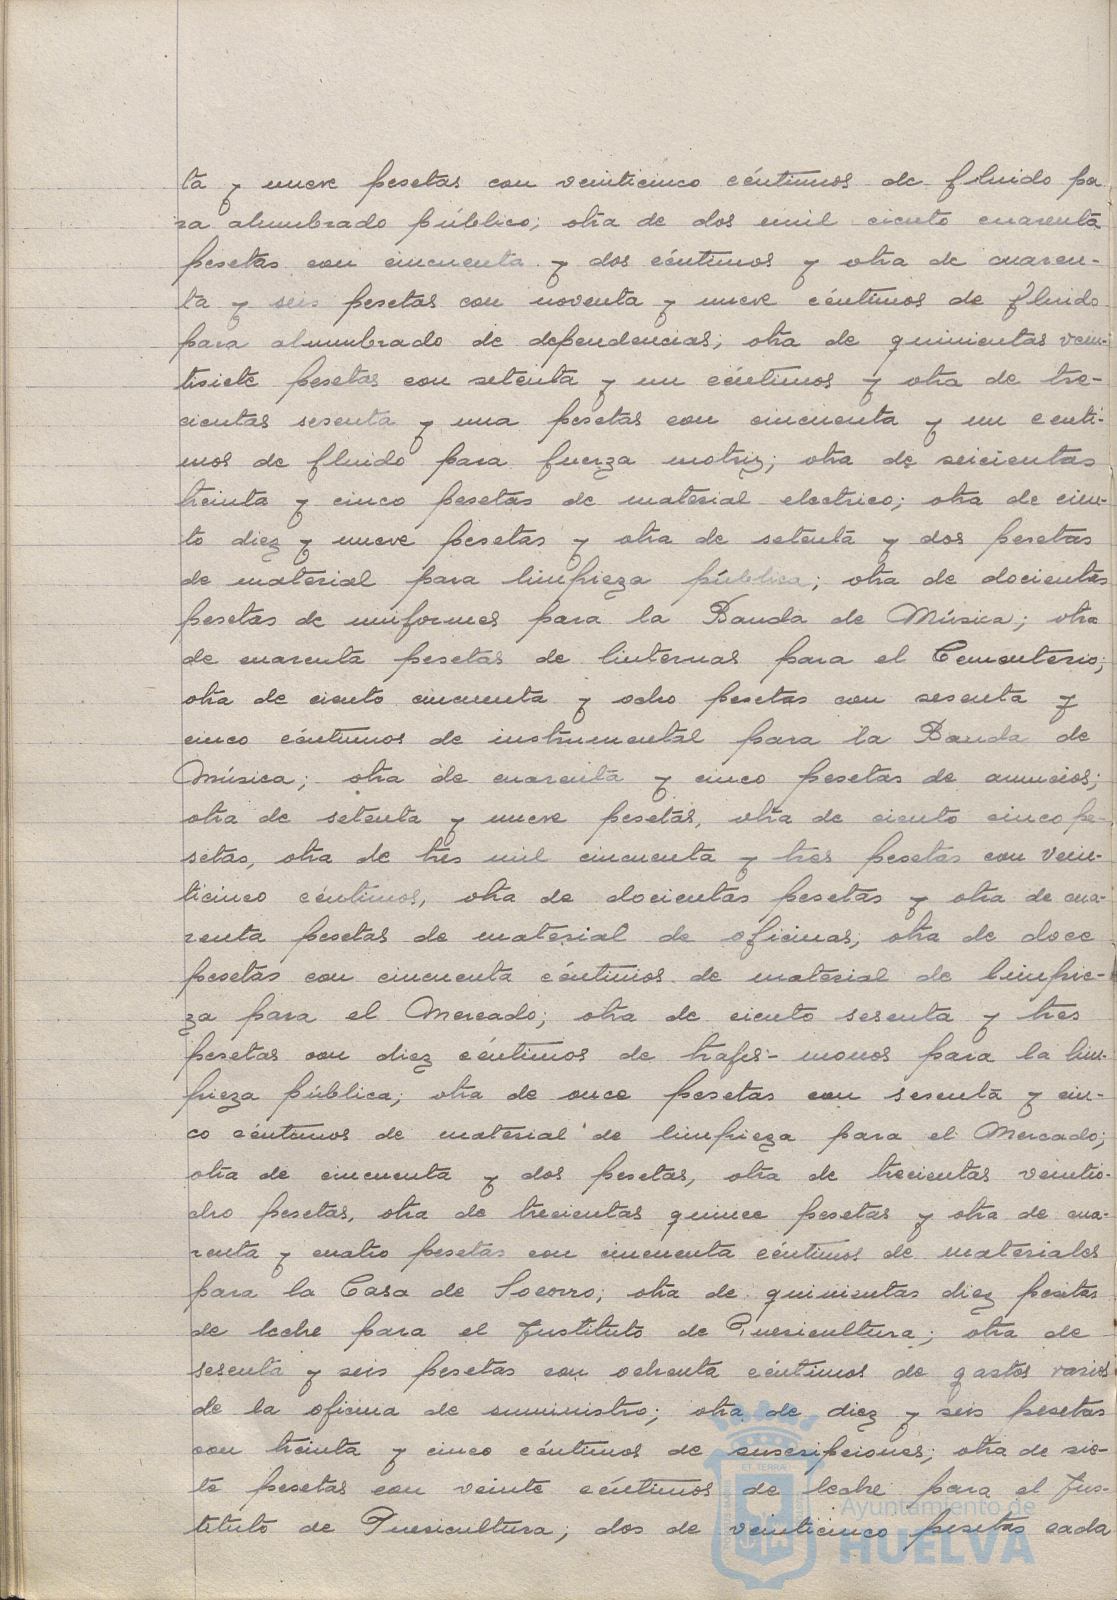 ta y nueve pesetas con veinticinco céntimos de fluido pa
ra alumbrado público; otra de dos mil ciento cuarenta
pesetas con cincuenta y dos céntimos y otra de cuaren-
ta y seis pesetas con noventa y nueve céntimos de fluido
para alumbrado de dependencias; otra de quinientas vein-
tisiete pesetas con setenta y un céntimos y otra de tre-
cientas sesenta y una pesetas con cincuenta y un centi-
mos de fluido para fuerza motriz; otra de seicientas
treinta y cinco pesetas de material electrico; otra de cien-
to diez y nueve pesetas y otra de setenta y dos pesetas
de material para limpieza pública; otra de docientas
pesetas de uniformes para la Banda de Música; otra
de cuarenta pesetas de linternas para el Cementerio;
otra de ciento cincuenta y ocho pesetas con sesenta y
cinco céntimos de instrumental para la Banda de
Música; otra de cuarenta y cinco pesetas de anuncios;
otra de setenta y nueve pesetas, otra de ciento cinco pe-
setas, otra de tres mil cincuenta y tres pesetas con vein-
ticinco céntimos, otra de docientas pesetas y otra de cua-
renta pesetas de material de oficinas; otra de doce
pesetas con cincuenta céntimos de material de limpie-
za para el Mercado; otra de ciento sesenta y tres
pesetas con diez céntimos de trajes-monos para la lim-
pieza pública; otra de once pesetas con sesenta y cin-
co céntimos de material de limpieza para el Mercado;
otra de cincuenta y dos pesetas, otra de trecientas veintio-
cho pesetas, otra de trecientas quince pesetas y otra de cua-
renta y cuatro pesetas con cincuenta céntimos de materiales
para la Casa de Socorro; otra de quinientas diez pesetas
de leche para el Instituto de Puericultura; otra de
sesenta y seis pesetas con ochenta céntimos de gastos varios
de la oficina de suministro; otra de diez y seis pesetas
con treinta y cinco céntimos de suscripciones; otra de sie-
te pesetas con veinte céntimos de leche para el Ins-
tituto de Puericultura; dos de veinticinco pesetas cada
Ayuntamiento de
HUELVA